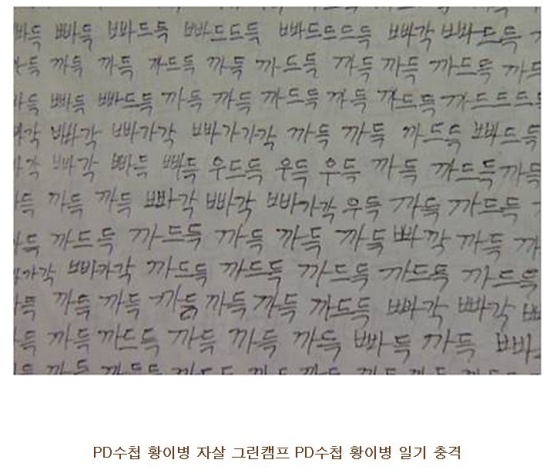 빠득 빠득 빠드득 빠드드득 빠드드드득 빠각 빠드드득
까득 까득 까드득 까드득 까득 까드득 까드득
빠득 빠드득 까득 까득 까드득 까득 까드득 까드드드득
빠각 빠가각 빠가가각 까득 까득 까드득 빠드득
빠각 빠득 빠득 우드득 우득 우득 까득 까드득 까득
까득 까득 빠각 빠각 빠가각 우득 까득 까드득
까드득 까드득 까득 까득 까득 빠각 까득
빠가각 까드득 까드득 까드득 까드득 까드득
까득 까득 까득 까득 까득 까드득 빠각 빠각
까득 까드득 까득 까득 까득 빠득 까득
PD수첩 황이병 자살 그린캠프 PD수첩 황이병 일기 충격